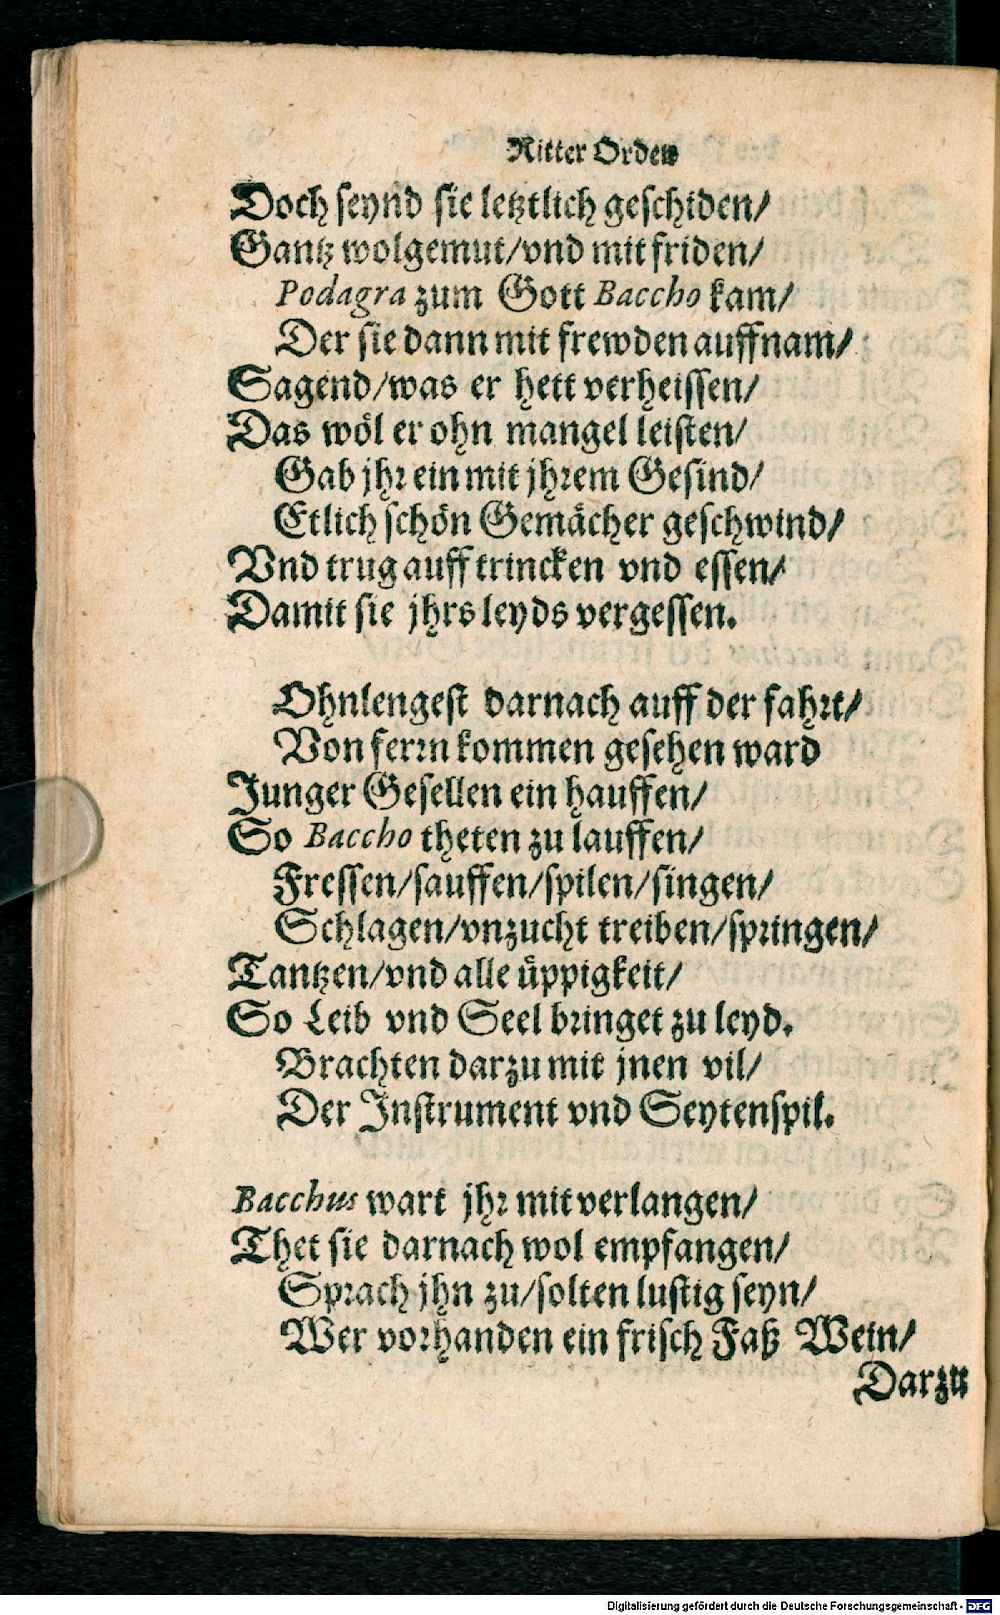 Ritter Orden
Doch seynd sie letztlich geschiden/
Gantz wolgemut/vnd mit friden/
Podagra zum Gott Baccho kam/
Der sie dann mit frewden auffnam/
Sagend/was er hett verheissen/
Das wöl er ohn mangel leisten/
Gab jhr ein mit jhrem Gesind/
Etlich schön Gemächer geschwind/
Vnd trug auff trincken vnd essen/
Damit sie jhrs leyds vergessen.
Ohnlengest darnach auff der fahrt/
Von ferrn kommen gesehen ward
Junger Gesellen ein hauffen/
So Baccho theten zu lauffen/
Fressen/sauffen/spilen/singen/
Schlagen/vnzucht treiben/springen/
Tantzen/vnd alle üppigkeit/
So Leib vnd Seel bringet zu leyd.
Brachten darzu mit jnen vil/
Der Instrument vnd Seytenspil.
Bacchus wart jhr mit verlangen/
Thet sie darnach wol empfangen/
Sprach jhn zu/solten lustig seyn/
Wer vorhanden ein frisch Faß Wein/
Darzu
Digitalisierung gefördert durch die Deutsche Forschungsgemeinschaft - DFG